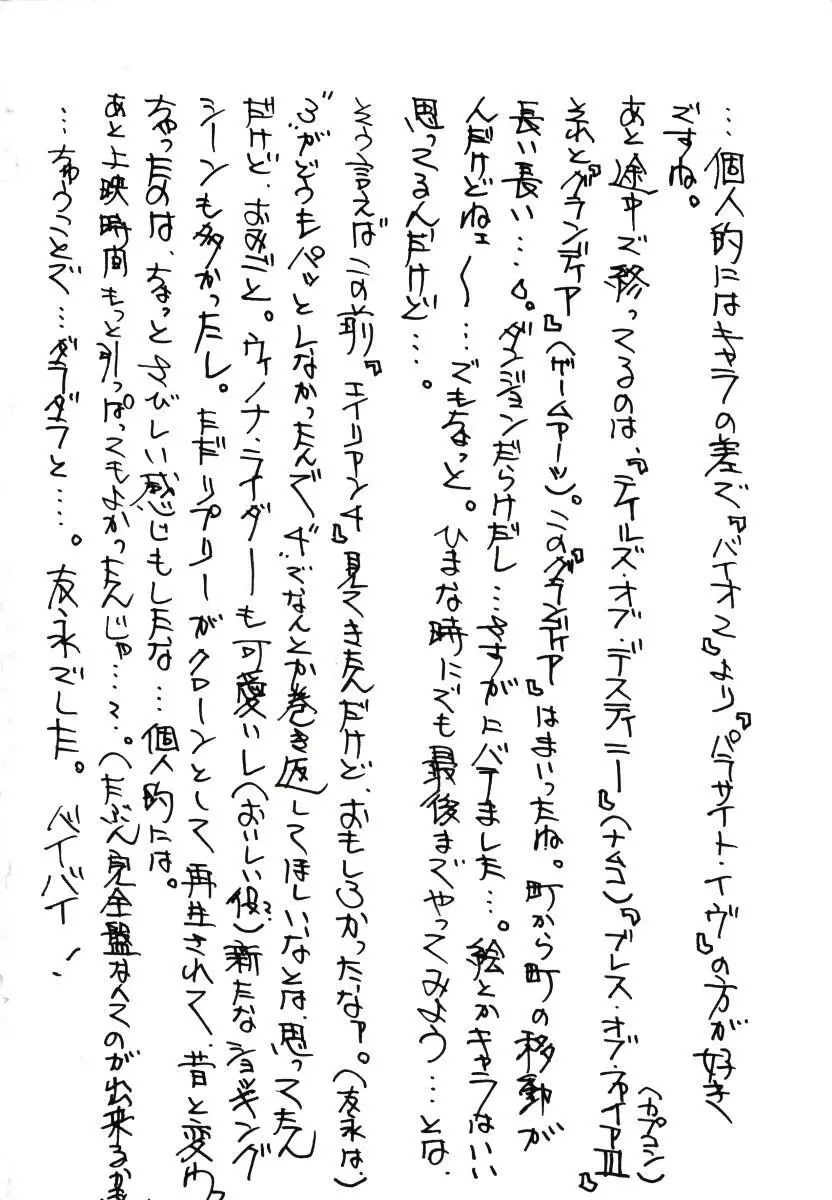 …個人的にはキャラの差で『バイオ2』より『パラサイト・イヴ』の方が好き
ですね。
あと途中で終ってるのは、『テイルズ・オブ・デスティニー』(ナムコ)『ブレス・オブ・ファイアⅢ』(カプコン)
それと『グランディア』(ゲームアーツ)。この『グランディア』はまいったね。町から町の移動が
長い長い…。ダンジョンだらけだし…さすがにバテました…。絵とかキャラないい
んだけどねェ〜…でもちっと。ひまな時にでも最後までやってみよう…とは、
思ってるんだけど…。
そう言えばこの前『エイリアン4』見てきたんだけど、おもしろかったなァ。(友永は、)
“3”がどうもパッとしなかったんで、“4”でなんとか巻き返してほしいなとは、思ってたん
だけど、おみごと。ウィノナ・ライダーも可愛いし(おいしい役?)新たなショッキング
シーンも多かったし。ただリプリーがクローンとして再生されて、昔と変わっ
ちゃったのは、ちょっとさびしい感じもしたな…個人的には。
あと上映時間もっと引っぱってもよかったんじゃ…?。(たぶん完全盤なんてのが出来るか
…ちゅうことで…ダラダラと…。友永でした。バイバイ!